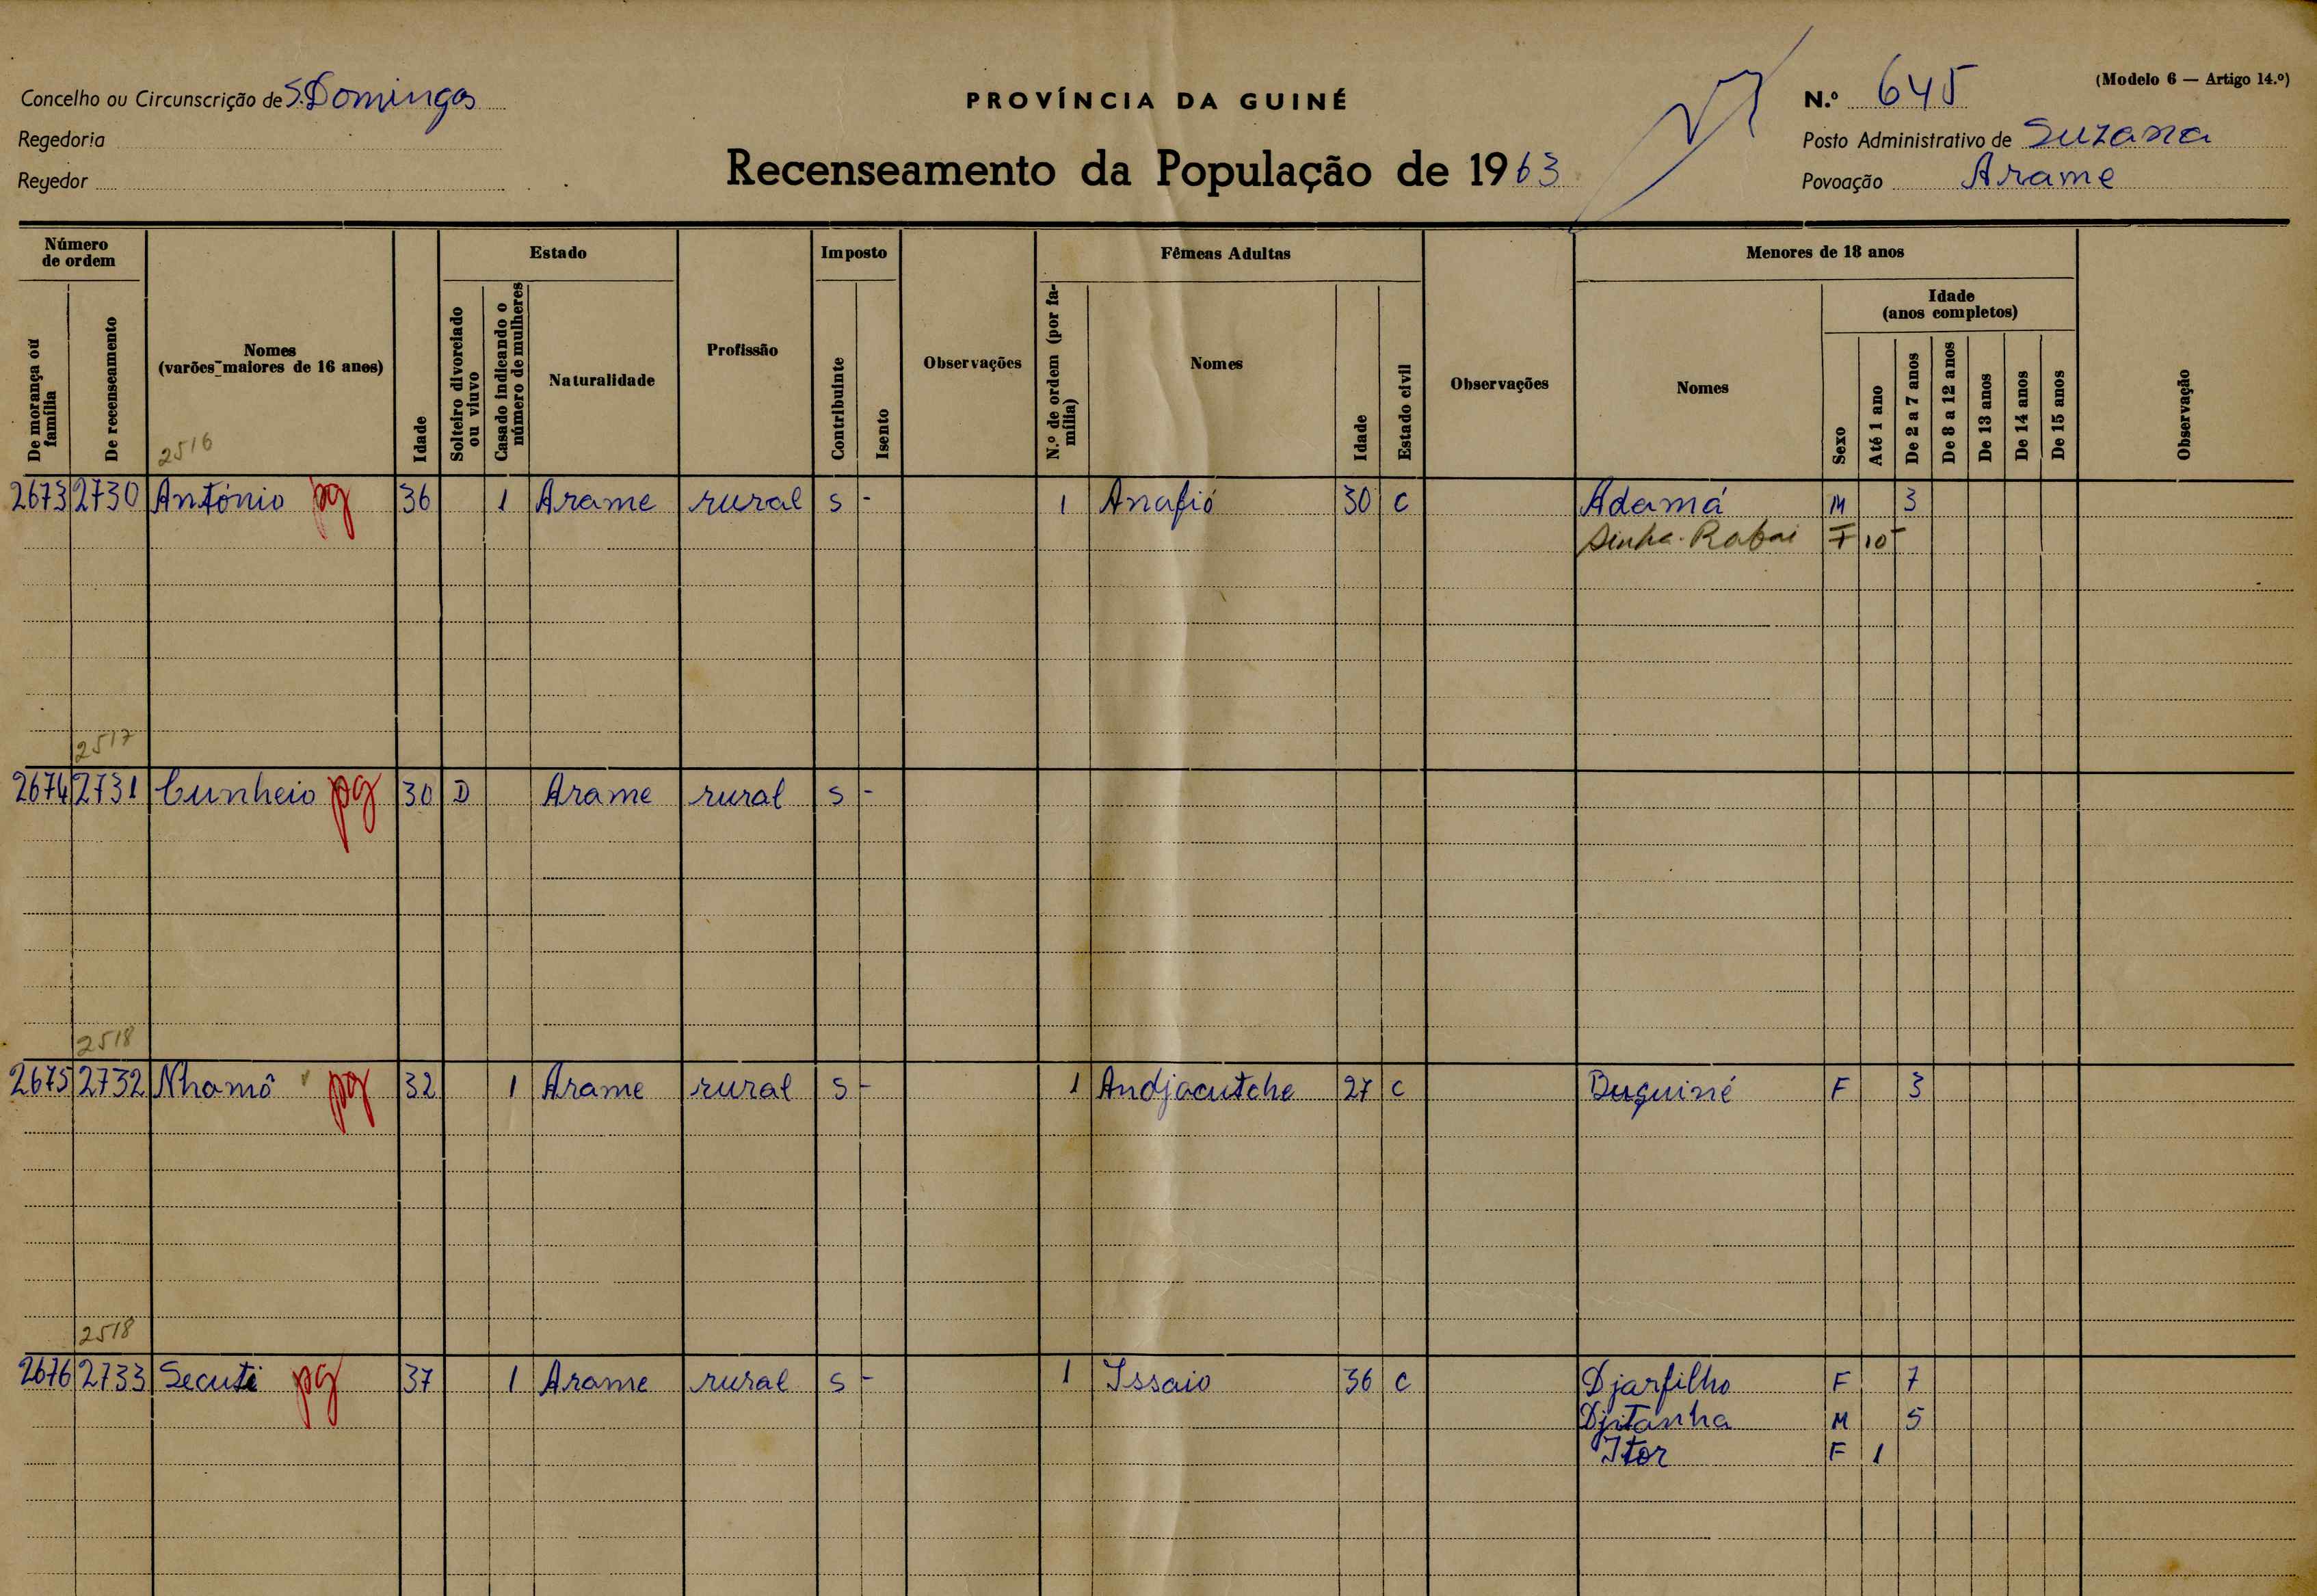 (Modelo 6 — Artigo 14.º)
Concelho ou Circunscrição de S. Domingos
PROVÍNCIA DA GUINÉ
N.º 645
Regedoria
Posto Administrativo de Suzana
Regedor
Recenseamento da População de 1963
Povoação Arame
Número de ordem
Estado
Imposto
Fêmeas Adultas
Menores de 18 anos
De morança ou família
De recenseamento
Nomes
(varões maiores de 16 anos)
Idade
Solteiro divorciado ou viuvo
Casado indicando o número de mulheres
Naturalidade
Profissão
Contribuinte
Isento
Observações
N.º de ordem (por família)
Nomes
Idade
Estado civil
Observações
Nomes
Idade
(anos completos)
Sexo
Até 1 ano
De 2 a 7 anos
De 8 a 12 anos
De 13 anos
De 14 anos
De 15 anos
Observação
2516
2673 2730 António pg 36 1 Arame rural s - 1 Anafió 30 C Adamá M 3
F 10
2517
2674 2731 Cunheio pg 30 D Arame rural s -
2518
2675 2732 Nhamô pg 32 1 Arame rural s - 1 Andjacutche 27 C Buguiné F 3
2518
2676 2733 Secuti pg 37 1 Arame rural s - 1 Issaio 36 C Djarfilho F 7
Djitanha M 5
Itor F 1